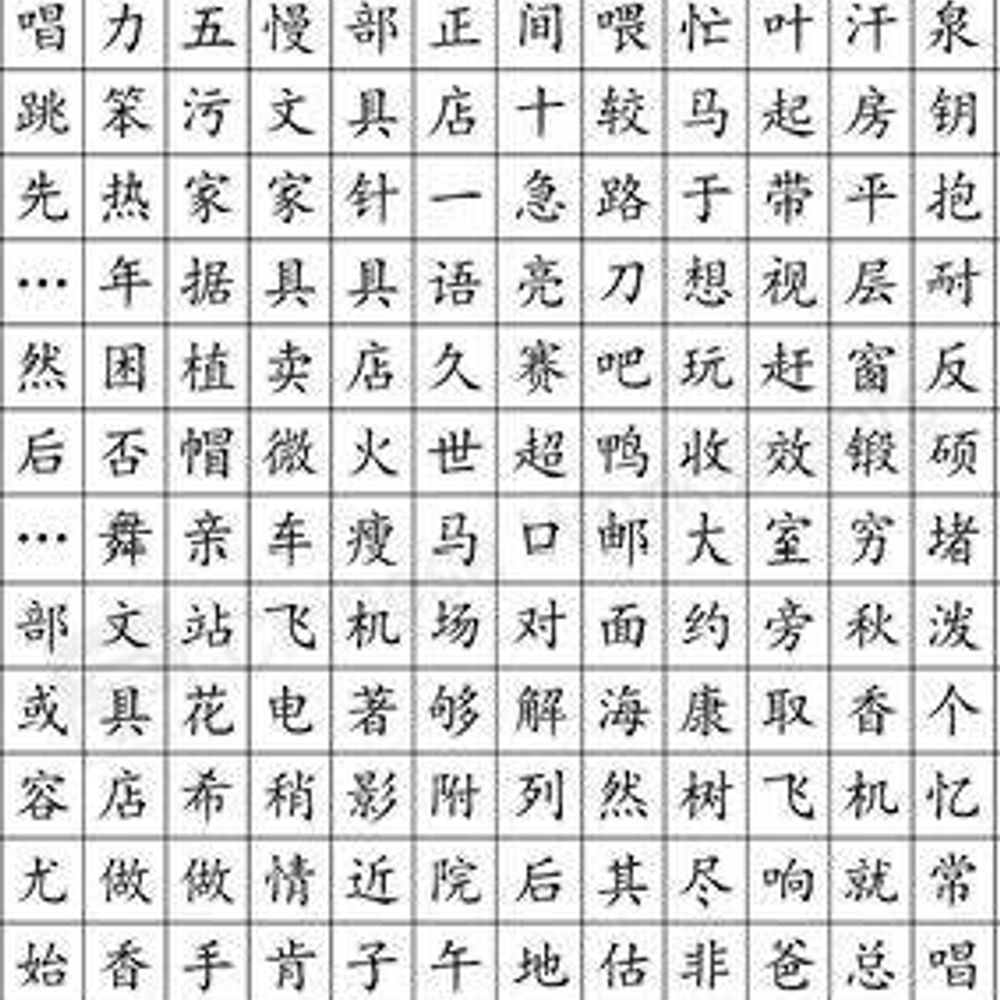 唱力五慢部正间喂忙叶汗泉
跳笨污文具店十较马起房钥
先热家家针一急路于带平抱
…年据具具语亮刀想视层耐
然困植卖店久赛吧玩赶窗反
后否帽微火世超鸭收效锻硕
…舞亲车瘦马口邮大室穷堵
部文站飞机场对面约旁秋泼
或具花电著够解海康取香个
容店希稍影附列然树飞机忆
尤做做情近院后其尽响就常
始香手肯子午地估非爸总唱